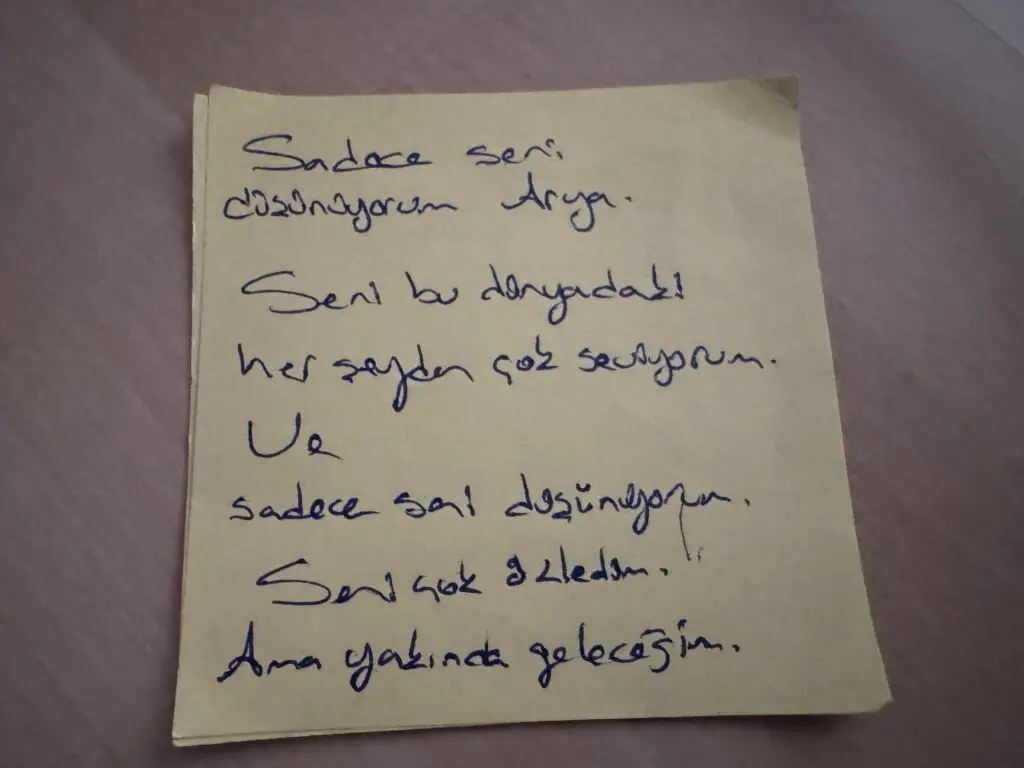 Sadece seni
düşünüyorum Arya.
Seni bu dünyadaki
her şeyden çok seviyorum.
Ve
sadece seni düşünüyorum.
Seni çok özledim.
Ama yakında geleceğim.